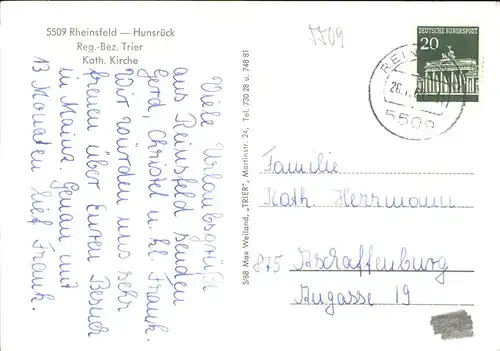 5509 Rheinsfeld — Hunsrück
Reg.-Bez. Trier
Kath. Kirche
Viele Urlaubsgrüße
aus Reinsfeld senden
Gerd, Christel u. kl. Frank.
Wir würden uns sehr
freuen über Euren Besuch
in Mainz. Genau mit
13 Monaten lief Frank.
5/68 Max Weiland, „TRIER", Martinstr. 24, Tel. 730 28 u. 748 81
5509
DEUTSCHE BUNDESPOST
20
5509
Familie
Kath. Herrmann
875 Aschaffenburg
Augasse 19